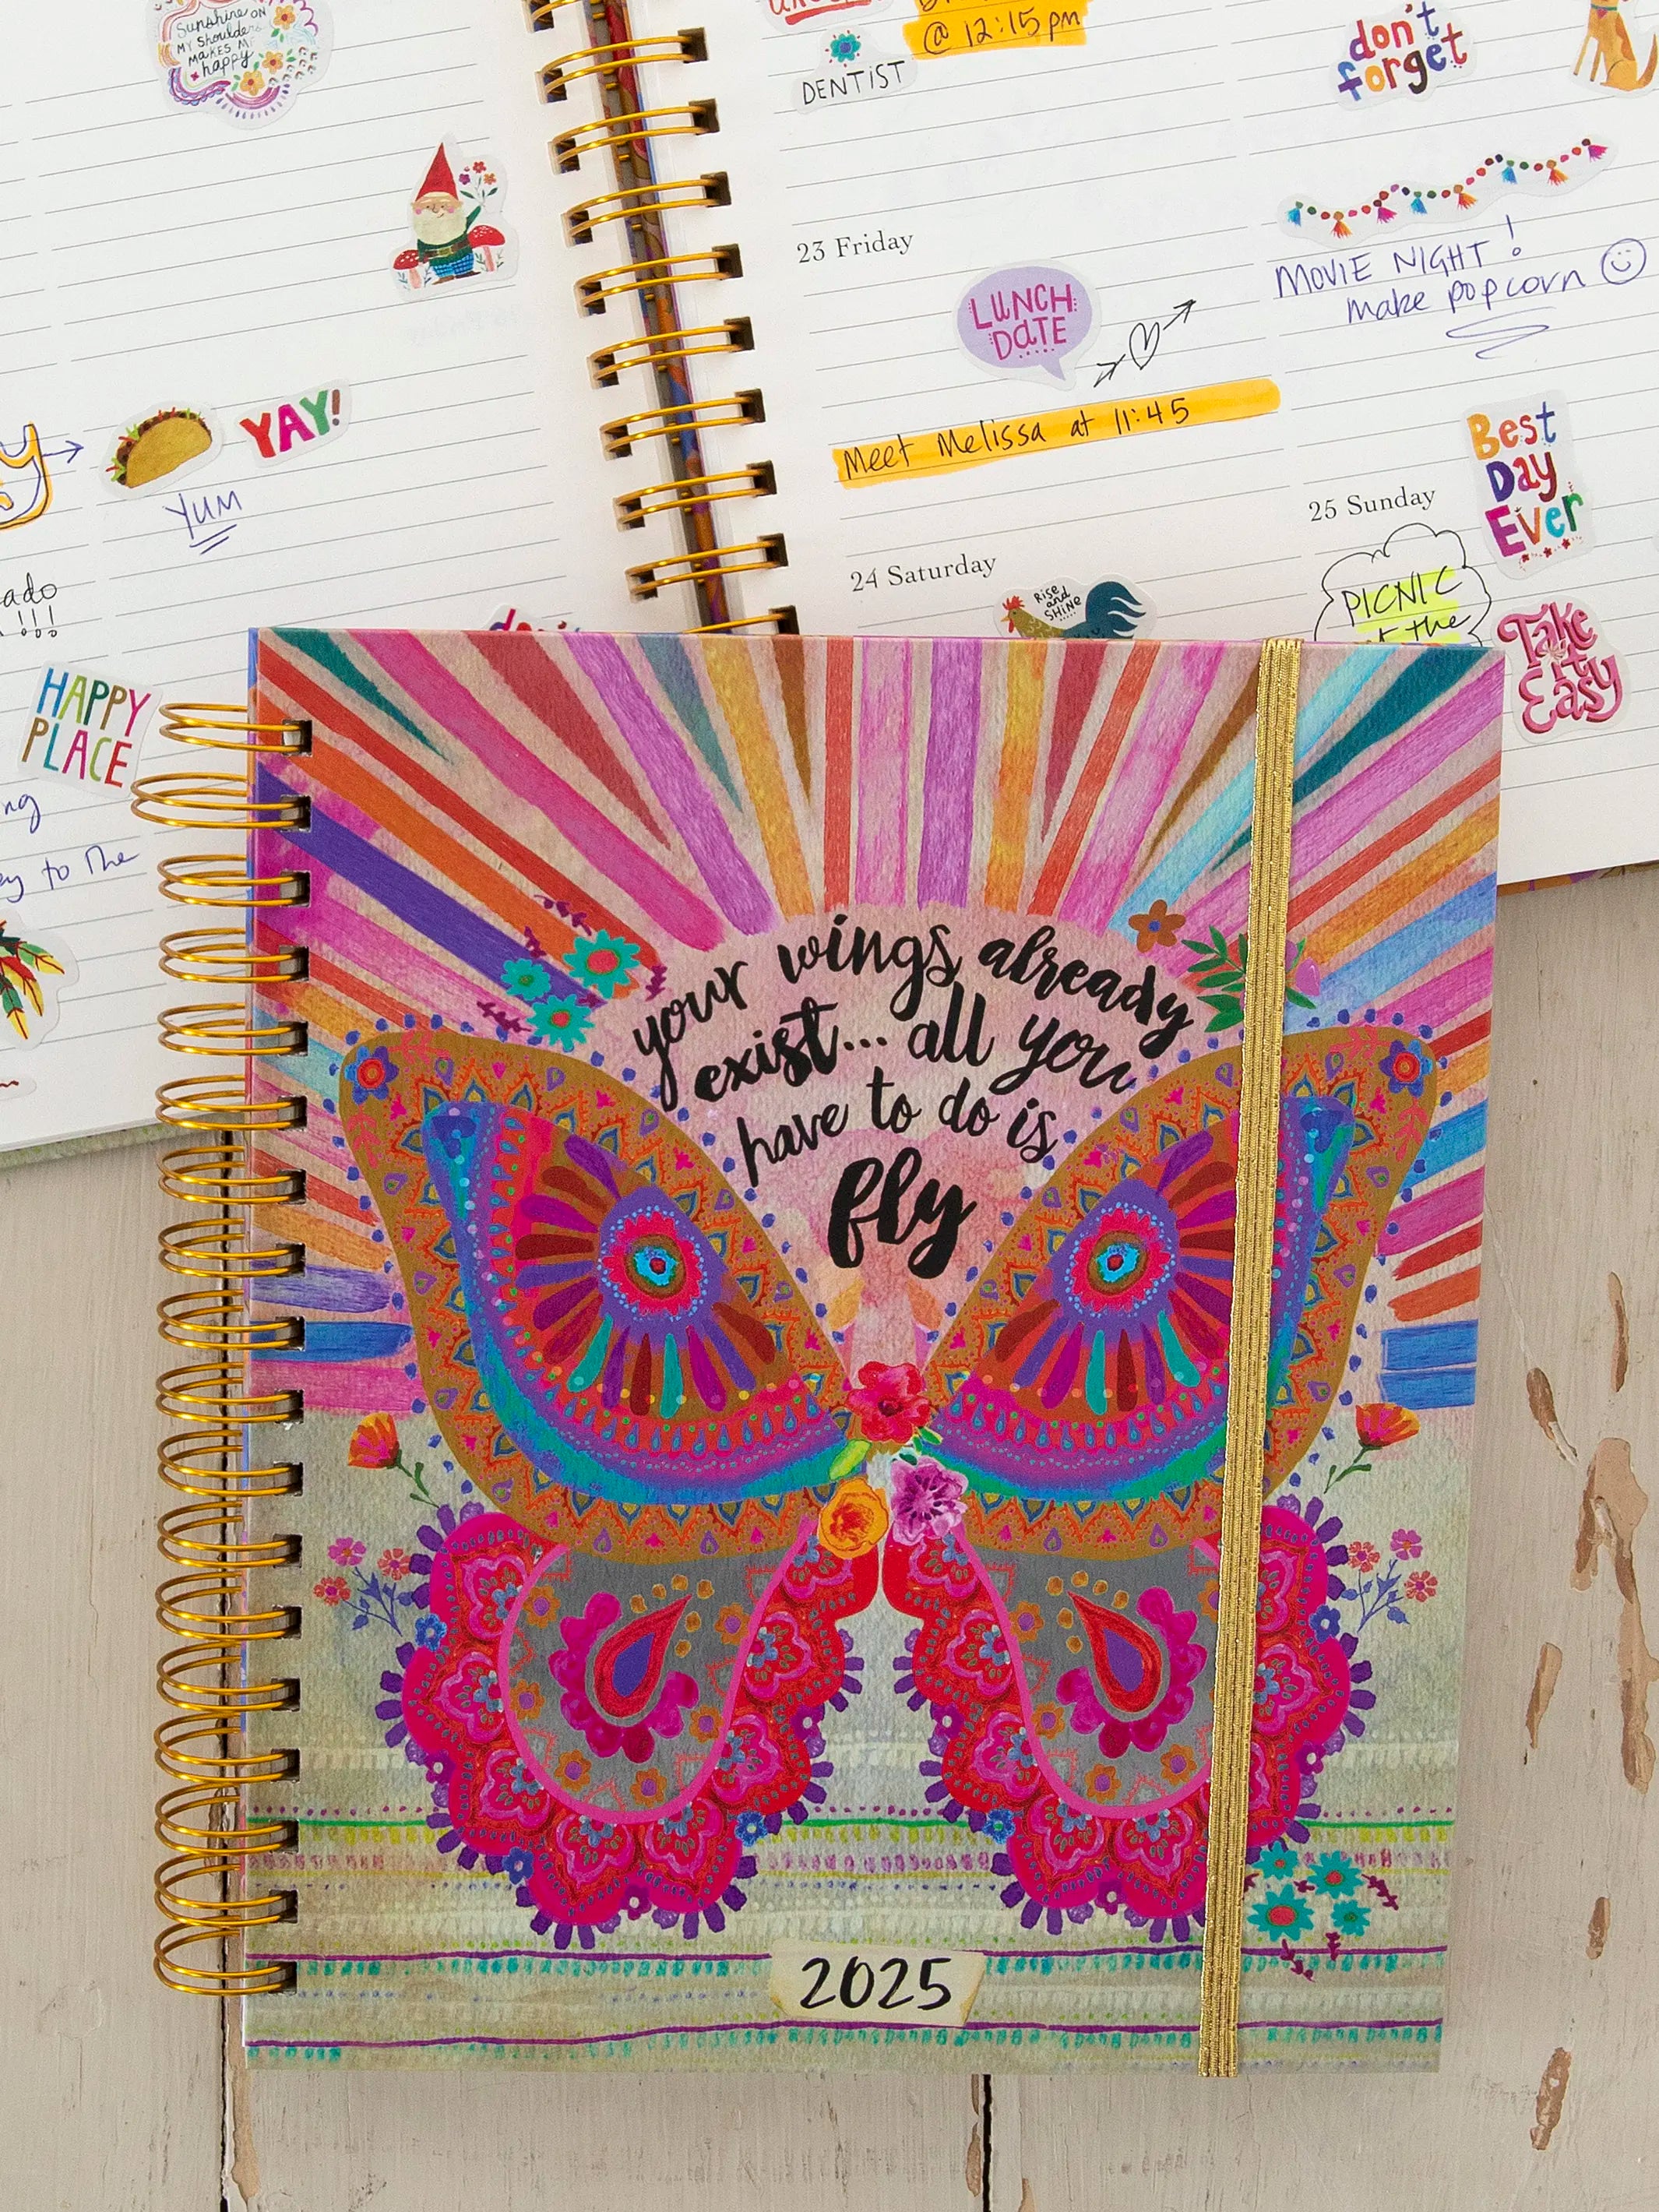 Sunshine on
my shoulders
makes me
happy
YAY!
YUM
ado
!!!
HAPPY
PLACE
ng
ey to the
@ 12:15 pm
DENTIST
don't
forget
23 Friday
LUNCH
DATE
Meet Melissa at 11:45
MOVIE NIGHT!
make popcorn
24 Saturday
Rise
and
SHINE
25 Sunday
Best
Day
Ever
PICNIC
the
Take
it
Easy
your wings already
exist... all you
have to do is
fly
2025